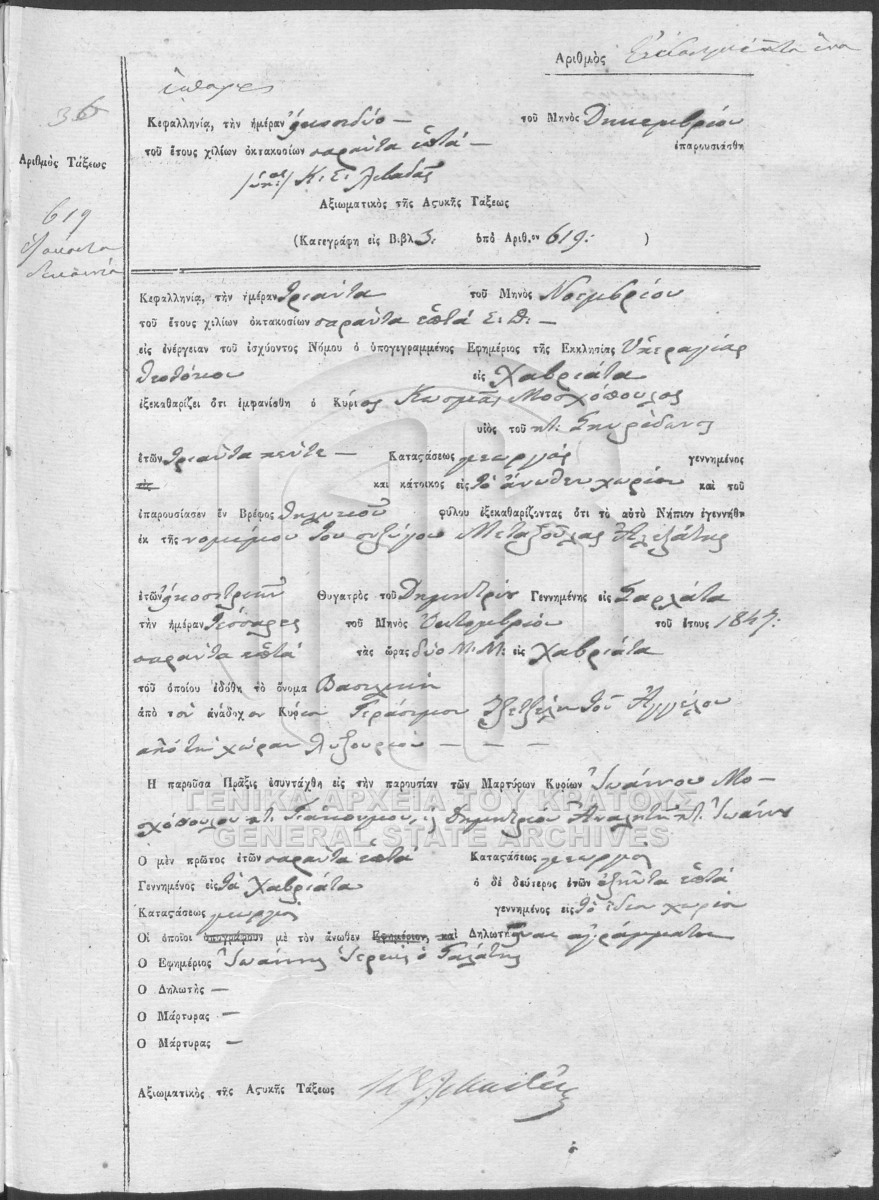 Ἀριθμὸς
36
Κεφαλληνίᾳ, τὴν ἡμέραν ἠκοσιδύο — τοῦ Μηνὸς Δηκεμβρίου
τοῦ ἔτους χιλίων ὀκτακοσίων σαράντα ἑπτά — ἐπαρουσιάσθη
Ἀριθμὸς Τάξεως
Κ. Σ. Λιβαδᾶς
Ἀξιωματικὸς τῆς Ἀςυκῆς Τάξεως
619
(Κατεγράφη εἰς Βιβλ 3. ὑπὸ Ἀριθ.ον 619: )
Κεφαλληνίᾳ, τὴν ἡμέραν τριάντα τοῦ Μηνὸς Νοεμβρίου
τοῦ ἔτους χιλίων ὀκτακοσίων σαράντα ἑπτά Ε. Π. —
εἰς ἐνέργειαν τοῦ ἰσχύοντος Νόμου ὁ ὑπογεγραμμένος Ἐφημέριος τῆς Ἐκκλησίας Ὑπεραγίας
Θεοτόκου εἰς Χαβριάτα
ἐξεκαθαρίζει ὅτι ἐμφανίσθη ὁ Κύριος Κοσμᾶς Μοσχόπουλος
υἱὸς τοῦ πτ. Σπυρίδωνος
ἐτῶν τριάντα πέντε — Καταςάσεως γεωργός γεννημένος
εἰς καὶ κάτοικος εἰς τὸ ἄνωθεν χωρίον καὶ τοῦ
ἐπαρουσίασεν ἓν Βρέφος θηλυκοῦ φύλου ἐξεκαθαρίζοντας ὅτι τὸ αὐτὸ Νήπιον ἐγεννήθη
ἐκ τῆς νομίμου του συζύγου Μεταξούλας Ἀλεξάτης
ἐτῶν ἠκοσιτριῶν Θυγατρὸς τοῦ Δημητρίου Γεννημένης εἰς Γαρλάτα
τὴν ἡμέραν τέσσαρες τοῦ Μηνὸς Ὀκτομβρίου τοῦ ἔτους 1847:
σαράντα ἑπτά τὰς ὥρας δύο Μ. Μ: εἰς Χαβριάτα
τοῦ ὁποίου ἐδόθη τὸ ὄνομα Βασιλικὴ
ἀπὸ τὸν ἀνάδοχον Κύριον Γεράσιμον τοῦ Ἀγγέλου
ἀπὸ τὴν χώραν Ληξουρίου — — —
Ἡ παροῦσα Πρᾶξις ἐσυντάχθη εἰς τὴν παρουσίαν τῶν Μαρτύρων Κυρίων Ἰωάννου Μο-
σχόπουλου πτ. Γιάκουμου, Δημητρίου Ἀναλητῆ πτ. Ἰωάννου
ΓΕΝΙΚΑ ΑΡΧΕΙΑ ΤΟΥ ΚΡΑΤΟΥΣ
GENERAL STATE ARCHIVES
Ὁ μὲν πρῶτος ἐτῶν σαράντα ἑπτά Καταςάσεως γεωργός
Γεννημένος εἰς τὰ Χαβριάτα ὁ δὲ δεύτερος ἐτῶν ἑξῆντα ἑπτά
Καταςάσεως γεωργός γεννημένος εἰς τὸ ἴδιον χωρίον
Οἱ ὁποῖοι ὑπογράφουν μὲ τὸν ἄνωθεν Ἐφημέριον, καὶ Δηλωτὴν εἶναι ἀγράμματοι
Ὁ Ἐφημέριος Ἰωάννης Ἱερεὺς ὁ Γαλάτης
Ὁ Δηλωτὴς —
Ὁ Μάρτυρας —
Ὁ Μάρτυρας —
Ἀξιωματικὸς τῆς Ἀςυκῆς Τάξεως